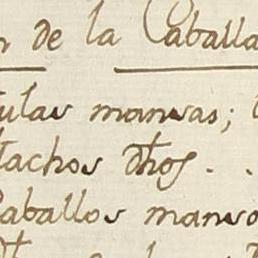 n de la Caballa
ulas mansas;
tachos dhos . .
Caballos manso